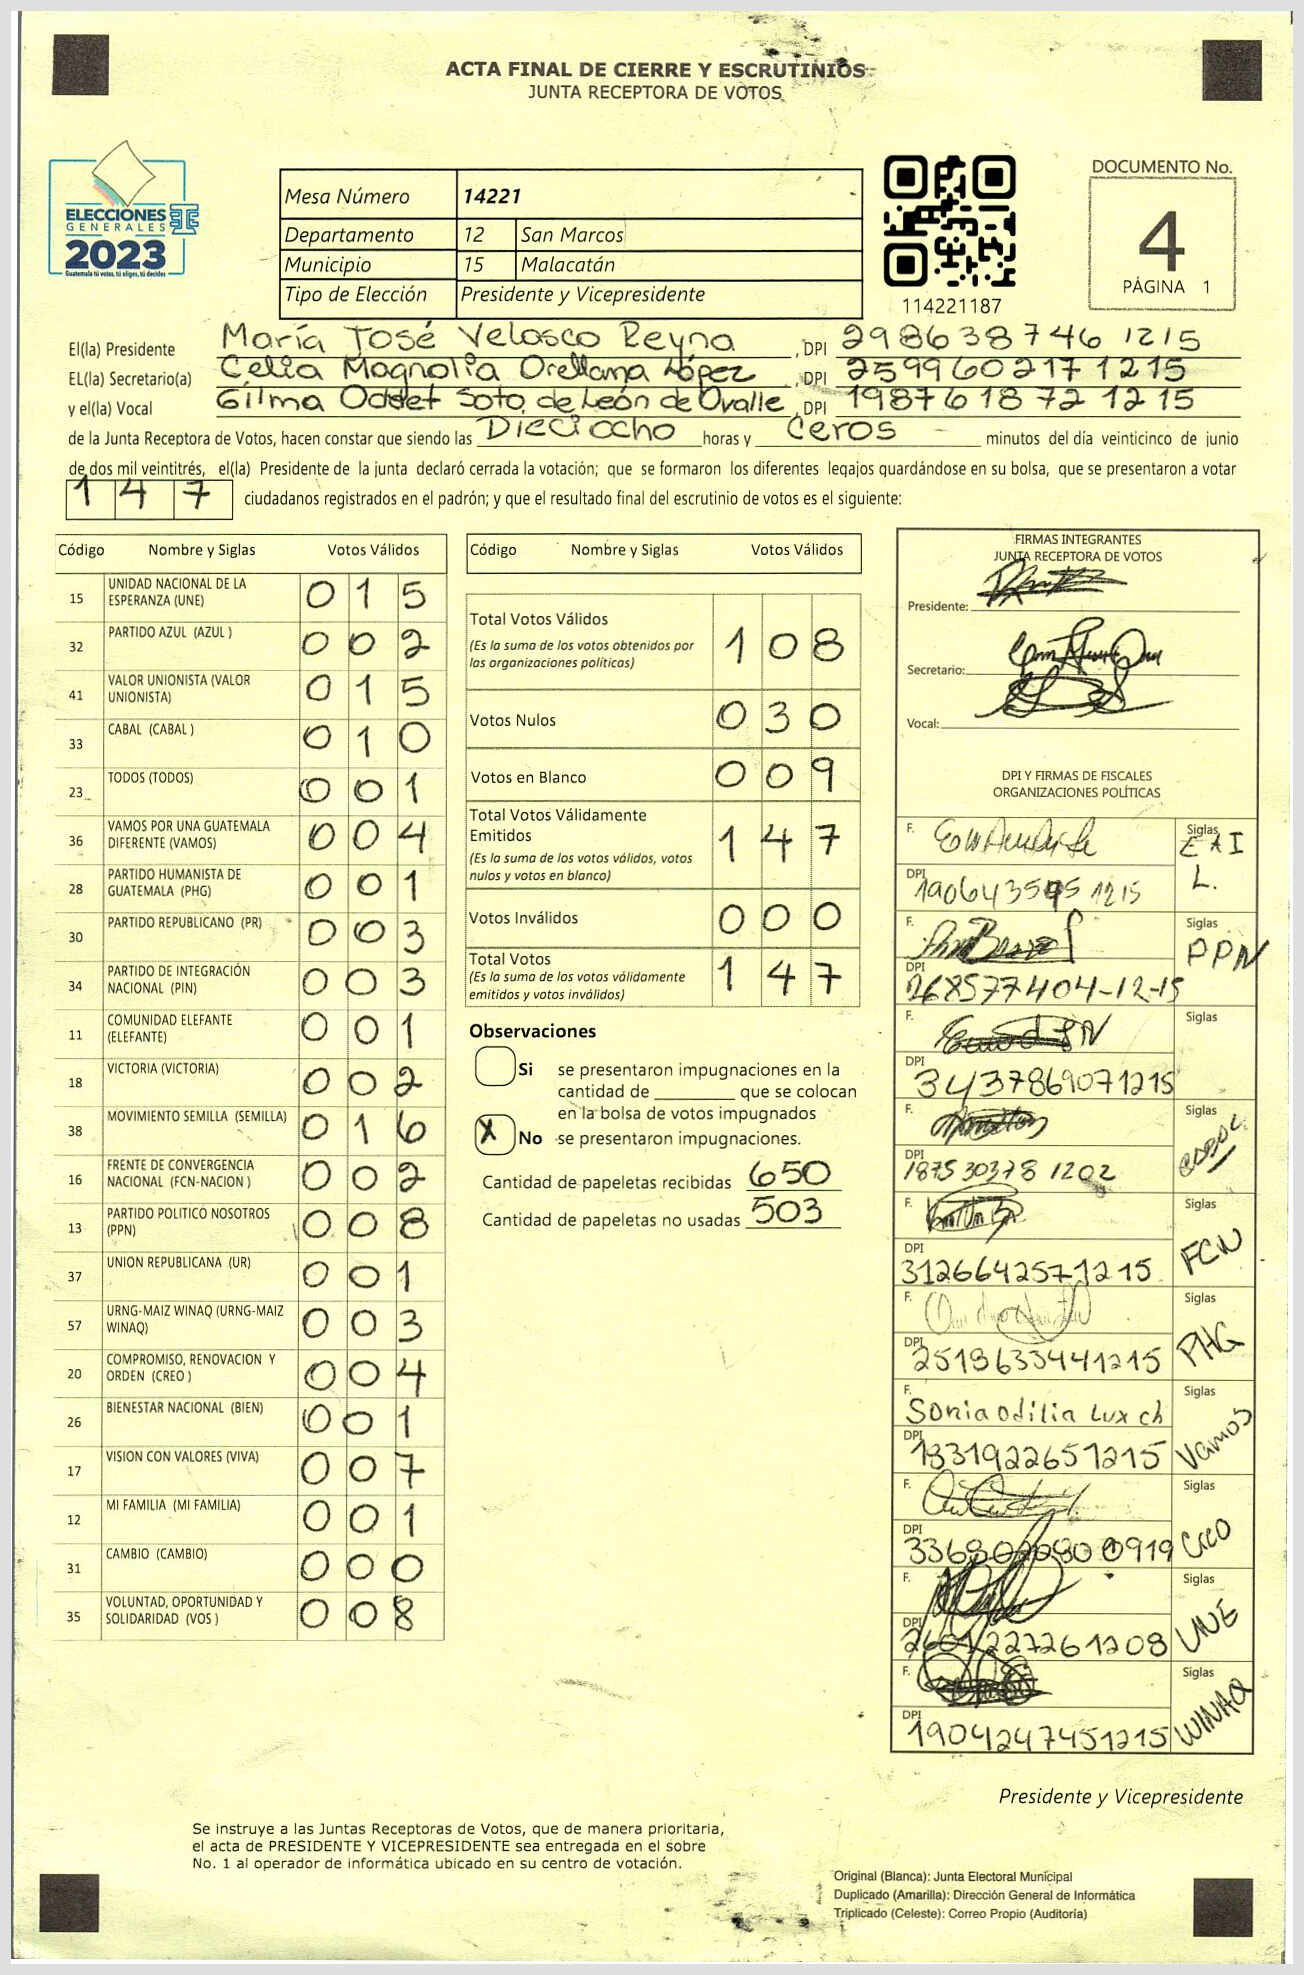 ACTA FINAL DE CIERRE Y ESCRUTINIOS
JUNTA RECEPTORA DE VOTOS
ELECCIONES
GENERALES
2023
Guatemala tú votas, tú eliges, tú decides
Mesa Número 14221
Departamento 12 San Marcos
Municipio 15 Malacatán
Tipo de Elección Presidente y Vicepresidente
114221187
DOCUMENTO No.
4
PÁGINA 1
El(la) Presidente María José Velasco Reyna, DPI 298638746 1215
EL(la) Secretario(a) Celia Magnolia Orellana López, DPI 259960217 1215
y el(la) Vocal Gilma Oddet Soto de León de Ovalle, DPI 198761872 1215
de la Junta Receptora de Votos, hacen constar que siendo las Dieciocho horas y Ceros minutos del día veinticinco de junio
de dos mil veintitrés, el(la) Presidente de la junta declaró cerrada la votación; que se formaron los diferentes legajos guardándose en su bolsa, que se presentaron a votar
147 ciudadanos registrados en el padrón; y que el resultado final del escrutinio de votos es el siguiente:
Código Nombre y Siglas Votos Válidos
15 UNIDAD NACIONAL DE LA ESPERANZA (UNE) 015
32 PARTIDO AZUL (AZUL ) 002
41 VALOR UNIONISTA (VALOR UNIONISTA) 015
33 CABAL (CABAL ) 010
23 TODOS (TODOS) 001
36 VAMOS POR UNA GUATEMALA DIFERENTE (VAMOS) 004
28 PARTIDO HUMANISTA DE GUATEMALA (PHG) 001
30 PARTIDO REPUBLICANO (PR) 003
34 PARTIDO DE INTEGRACIÓN NACIONAL (PIN) 003
11 COMUNIDAD ELEFANTE (ELEFANTE) 001
18 VICTORIA (VICTORIA) 002
38 MOVIMIENTO SEMILLA (SEMILLA) 016
16 FRENTE DE CONVERGENCIA NACIONAL (FCN-NACION ) 002
13 PARTIDO POLITICO NOSOTROS (PPN) 008
37 UNION REPUBLICANA (UR) 001
57 URNG-MAIZ WINAQ (URNG-MAIZ WINAQ) 003
20 COMPROMISO, RENOVACION Y ORDEN (CREO ) 004
26 BIENESTAR NACIONAL (BIEN) 001
17 VISION CON VALORES (VIVA) 007
12 MI FAMILIA (MI FAMILIA) 001
31 CAMBIO (CAMBIO) 000
35 VOLUNTAD, OPORTUNIDAD Y SOLIDARIDAD (VOS ) 008
Código Nombre y Siglas Votos Válidos
Total Votos Válidos 108
(Es la suma de los votos obtenidos por
las organizaciones políticas)
Votos Nulos 030
Votos en Blanco 009
Total Votos Válidamente
Emitidos 147
(Es la suma de los votos válidos, votos
nulos y votos en blanco)
Votos Inválidos 000
Total Votos 147
(Es la suma de los votos válidamente
emitidos y votos inválidos)
Observaciones
Si se presentaron impugnaciones en la
cantidad de ________ que se colocan
en la bolsa de votos impugnados
X No se presentaron impugnaciones.
Cantidad de papeletas recibidas 650
Cantidad de papeletas no usadas 503
FIRMAS INTEGRANTES
JUNTA RECEPTORA DE VOTOS
Presidente:
Secretario:
Vocal:
DPI Y FIRMAS DE FISCALES
ORGANIZACIONES POLÍTICAS
F. Siglas
DPI 1215 L.
F. Siglas PPN
DPI 268577404-12-15
F. Siglas
DPI 3437869071215
F. Siglas
DPI 187530378 1202
F. Siglas FCN
DPI 3126642571215
F. Siglas PHG
DPI 2519633441215
F. Sonia odilia Lux ch Siglas Vamos
DPI 1831922651215
F. Siglas
DPI 0919
F. Siglas UNE
DPI 2601227261208
F. Siglas WINAQ
DPI 1904247451215
Presidente y Vicepresidente
Se instruye a las Juntas Receptoras de Votos, que de manera prioritaria,
el acta de PRESIDENTE Y VICEPRESIDENTE sea entregada en el sobre
No. 1 al operador de informática ubicado en su centro de votación.
Original (Blanca): Junta Electoral Municipal
Duplicado (Amarilla): Dirección General de Informática
Triplicado (Celeste): Correo Propio (Auditoría)